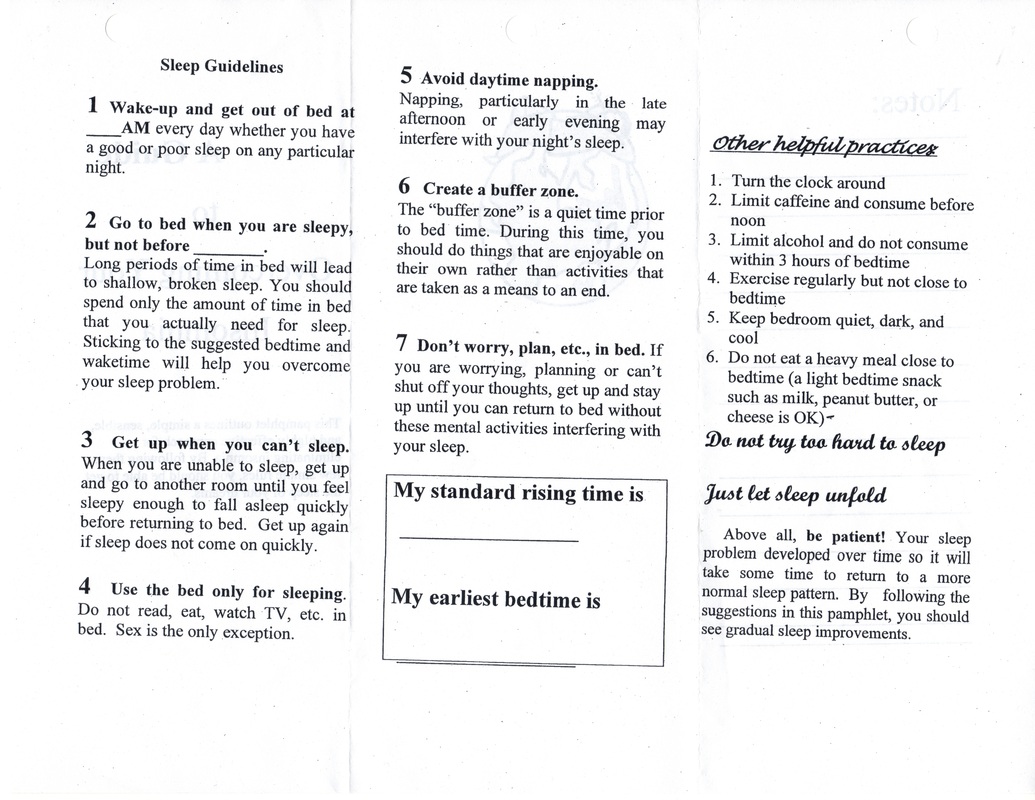 Sleep Guidelines
1 Wake-up and get out of bed at
____AM every day whether you have
a good or poor sleep on any particular
night.
2 Go to bed when you are sleepy,
but not before ________.
Long periods of time in bed will lead
to shallow, broken sleep. You should
spend only the amount of time in bed
that you actually need for sleep.
Sticking to the suggested bedtime and
waketime will help you overcome
your sleep problem.
3 Get up when you can't sleep.
When you are unable to sleep, get up
and go to another room until you feel
sleepy enough to fall asleep quickly
before returning to bed. Get up again
if sleep does not come on quickly.
4 Use the bed only for sleeping.
Do not read, eat, watch TV, etc. in
bed. Sex is the only exception.
5 Avoid daytime napping.
Napping, particularly in the late
afternoon or early evening may
interfere with your night's sleep.
6 Create a buffer zone.
The “buffer zone” is a quiet time prior
to bed time. During this time, you
should do things that are enjoyable on
their own rather than activities that
are taken as a means to an end.
7 Don't worry, plan, etc., in bed. If
you are worrying, planning or can't
shut off your thoughts, get up and stay
up until you can return to bed without
these mental activities interfering with
your sleep.
My standard rising time is
My earliest bedtime is
Other helpful practices
1. Turn the clock around
2. Limit caffeine and consume before
noon
3. Limit alcohol and do not consume
within 3 hours of bedtime
4. Exercise regularly but not close to
bedtime
5. Keep bedroom quiet, dark, and
cool
6. Do not eat a heavy meal close to
bedtime (a light bedtime snack
such as milk, peanut butter, or
cheese is OK)
Do not try too hard to sleep
Just let sleep unfold
Above all, be patient! Your sleep
problem developed over time so it will
take some time to return to a more
normal sleep pattern. By following the
suggestions in this pamphlet, you should
see gradual sleep improvements.